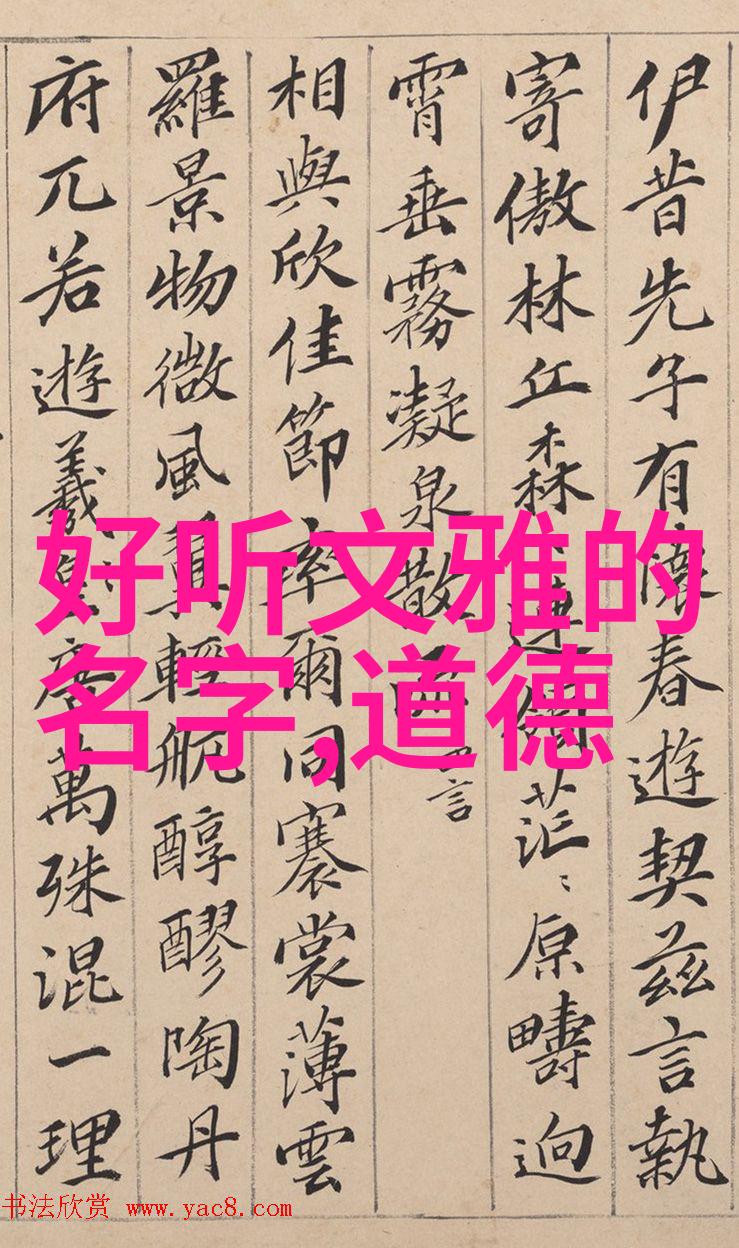 伊昔先子有懷春遊契茲言執
寄傲林丘森〻連茫〻原疇迥
霄垂霧凝泉散
言
相與欣佳節率爾同褰裳薄雲
羅景物微風翼輕航醇醪陶丹
府兀若遊羲唐萬殊混一理
好听文雅的
名字,道德
书法欣赏 www.yac8.com